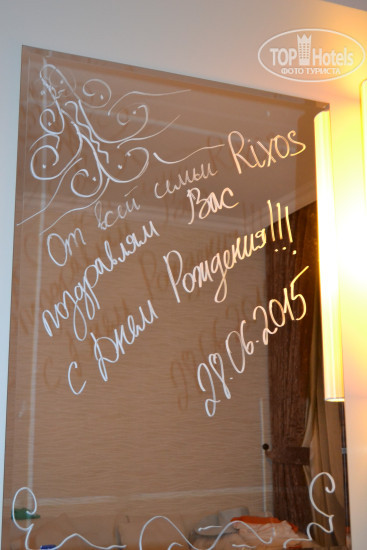 TOP Hotels
ФОТО ТУРИСТА
От всей семьи Rixos
поздравляем Вас
с Днем Рождения!!!
28.06.2015